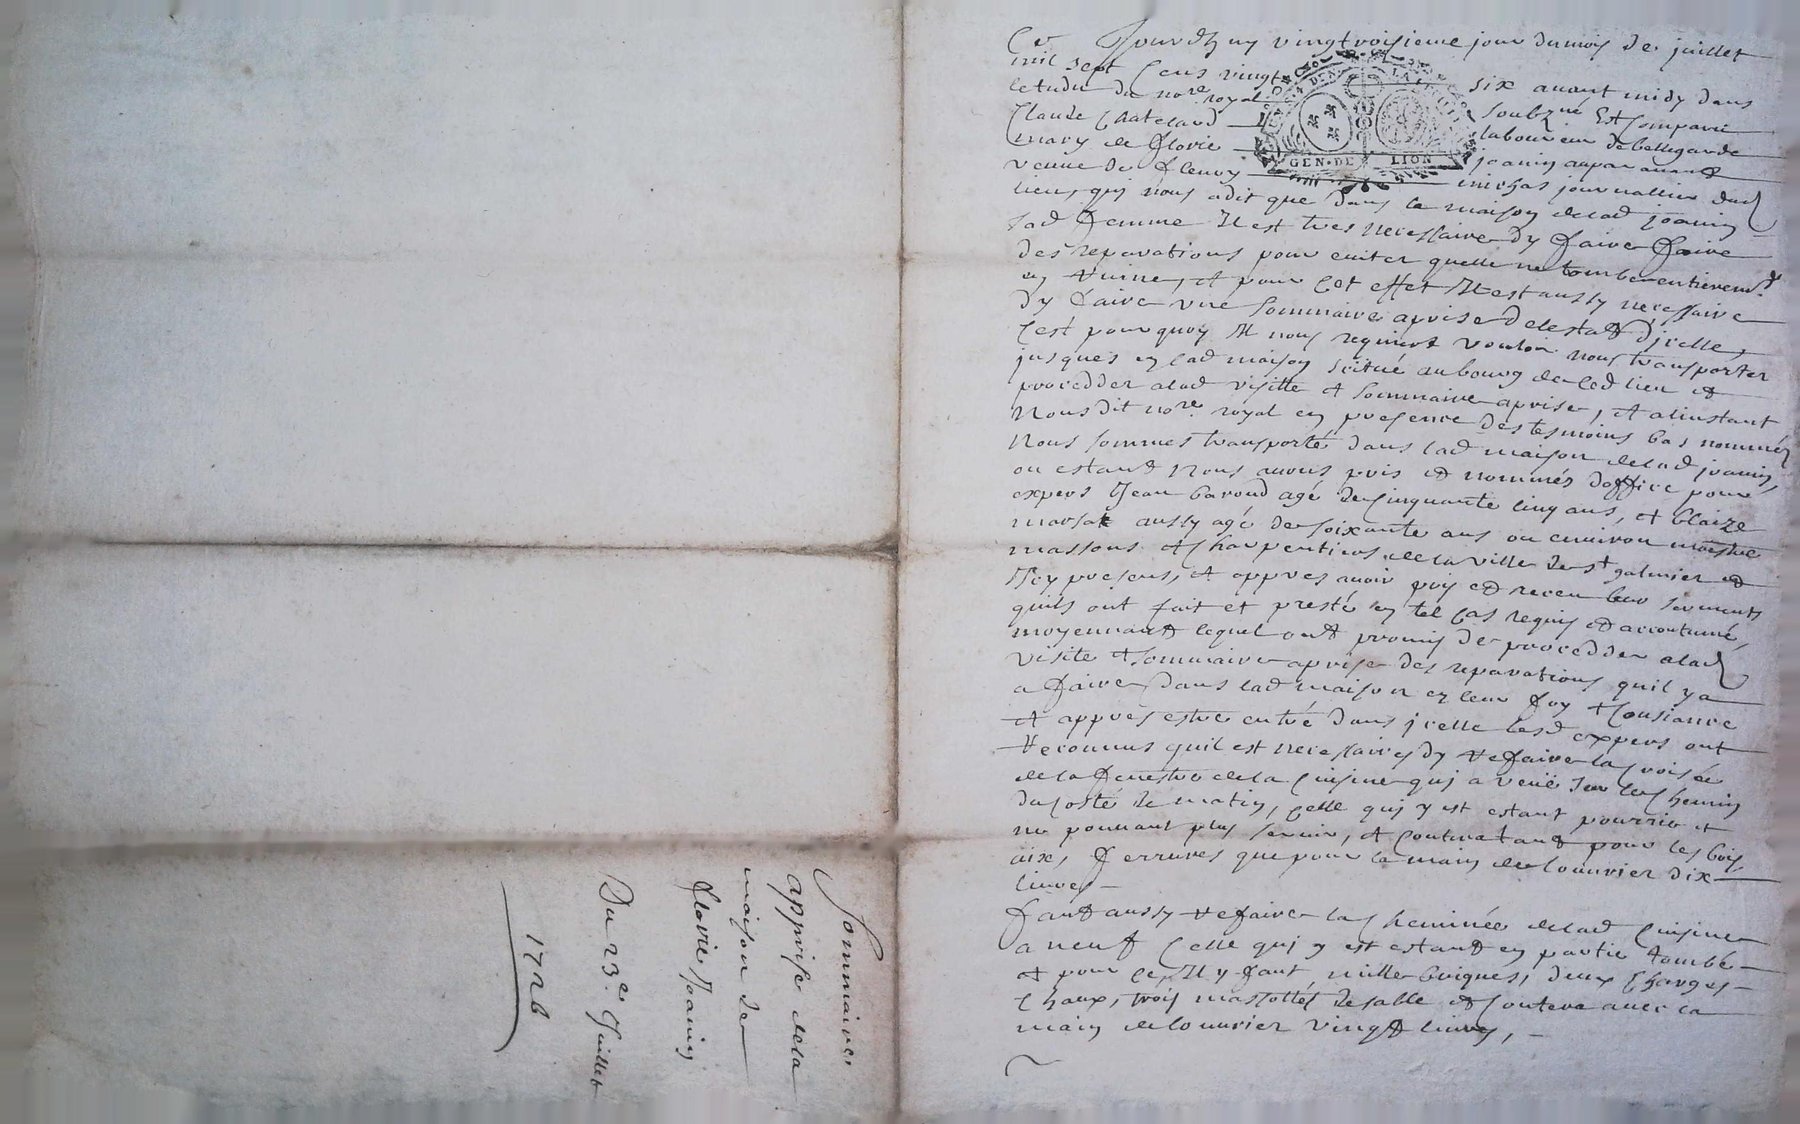 Sommaire
apprise dela
maison de
florie Joanin
Du 23e Juillet
1726
Ce Jourdhuy vingtroisieme jour du mois de juillet
mil sept cens vingt six avant midy dans
letude du nore royal soubzné Est comparu
Claude Chatelard laboureur de bellegarde
mary de florie joanin auparavant
veuve de fleury michas journallier dud
lieu, quj nous a dit que dans la maison de lad joanin
sad femme Il est tres necessaire dy faire faire
des reparations pour eviter quelle ne tombe entierem.t
en ruine, et pour cet effet Il est aussy necessaire
dy faire une sommaire aprise de lestat djcelle,
cest pourquoy Il nous requiert vouloir nous transporter
jusques en lad maison scitué au bourg de led lieu et
procedder a lad visitte et sommaire aprise, et a linstant
Nous dit nore royal en presence des tesmoins bas nommés
Nous sommes transporté dans lad maison de lad joanin,
ou estant Nous avons pris et nommés doffice pour
expers Jean baroud agé de cinquante cinq ans, et blaize
marsat aussy agé de soixante ans ou environ maistre
massons et charpentiers de la ville de st galmier et
Icy presens, et appres avoir pris et receu leur serments
quils ont fait et presté en tel cas requis et accoutumé,
moyennant lequel ont promis de procedder a lad
visite et sommaire aprise des reparations quil y a
a faire dans lad maison en leur foy et consiance
et appres estre entré dans jcelle lesd expers ont
reconnus quil est necessaires dy refaire la croisée
de la fenestre de la cuisine quj a veuë sur le chemin
du costé de matin, celle quj y est estant pourrie et
ne pouvant plus servir, et coutera tant pour les bois,
aix, ferrures que pour la main de louvrier dix
livres
faut aussy refaire la cheminée de lad cuisine
a neuf celle quj y est estant en partie tombé
et pour ce Il y faut mille briques, deux charges
chaux, trois massottés de sable et coutera avec la
main de louvrier vingt livres,
GEN·DE LION